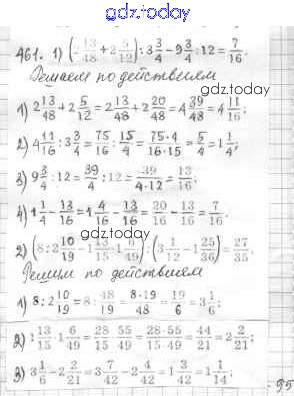 gdz.today
461. 1) (2 13/48 + 2 5/12) : 3 3/4 - 9 3/4 : 12 = 7/16.
Решаем по действиям
gdz.today
1) 2 13/48 + 2 5/12 = 2 13/48 + 2 20/48 = 4 39/48 = 4 11/16;
2) 4 11/16 : 3 3/4 = 75/16 : 15/4 = 75·4/16·15 = 5/4 = 1 1/4;
3) 9 3/4 : 12 = 39/4 : 12 = 39/4·12 = 13/16;
4) 1 1/4 - 13/16 = 1 4/16 - 13/16 = 20/16 - 13/16 = 7/16.
gdz.today
2) (8 : 2 10/19 - 1 13/15 · 1 6/49) : (3 1/12 - 1 25/36) = 27/35.
Решим по действиям
gdz.today
1) 8 : 2 10/19 = 8 : 48/19 = 8·19/48 = 19/6 = 3 1/6;
2) 1 13/15 · 1 6/49 = 28/15 · 55/49 = 28·55/15·49 = 44/21 = 2 2/21;
3) 3 1/6 - 2 2/21 = 3 7/42 - 2 4/42 = 1 3/42 = 1 1/14;